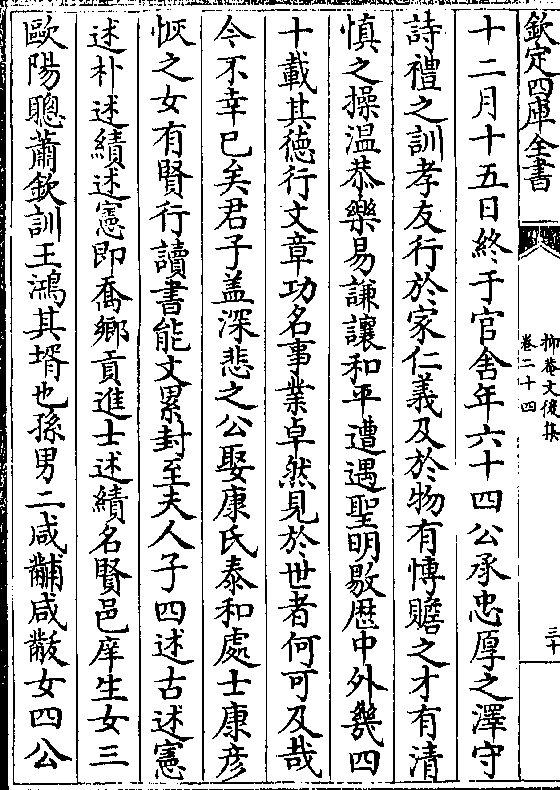 欽定四庫全書
抑菴文後集
卷二十四
三十
十二月十五日終于官舎年六十四公承忠厚之澤守
詩禮之訓孝友行於家仁義及於物有博贍之才有清
慎之操温恭樂易謙讓和平遭遇聖明敭歴中外㡬四
十載其德行文章功名事業卓然見於世者何可及哉
今不幸已矣君子盖深悲之公娶康氏泰和處士康彦
恢之女有賢行讀書能文累封至夫人子四述古述憲
述朴述績述憲即喬鄉貢進士述績名賢邑庠生女三
歐陽聰蕭欽訓王鴻其壻也孫男二咸黼咸黻女四公